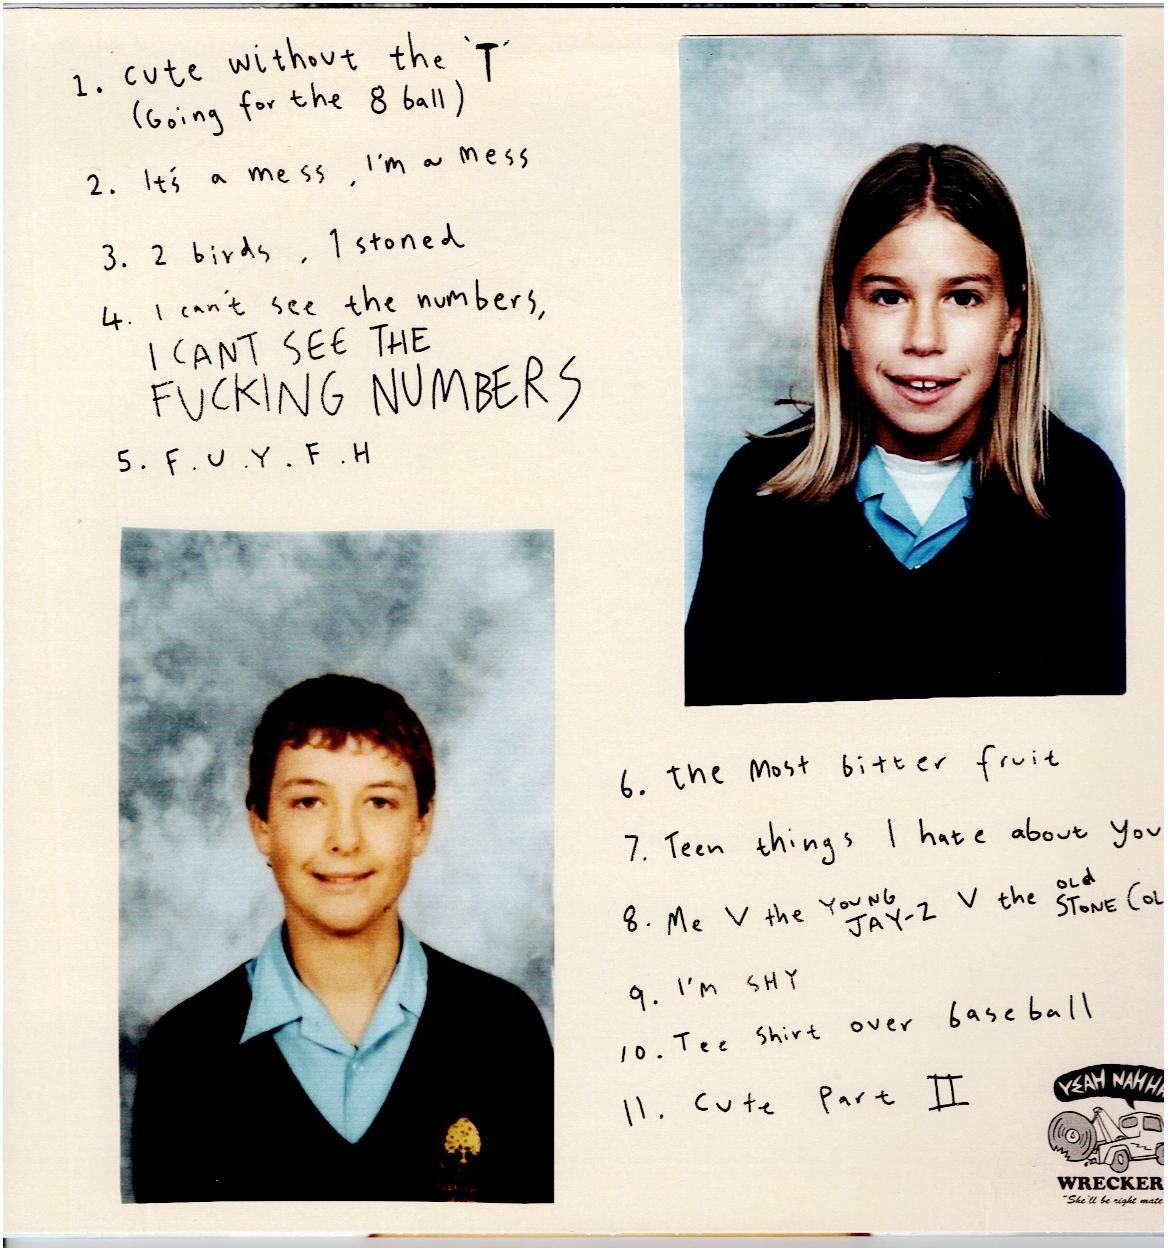 1. cute without the 'T'
(Going for the 8 ball)
2. It's a mess, I'm a mess
3. 2 birds, 1 stoned
4. I can't see the numbers,
I CANT SEE THE
FUCKING NUMBERS
5. F.U.Y.F.H
6. the most bitter fruit
7. Teen things I hate about you
8. Me V the YOUNG JAY-Z V the OLD STONE COL
9. I'm SHY
10. Tee shirt over baseball
11. Cute Part II
YEAH NAHH
WRECKER
"She'll be right mate